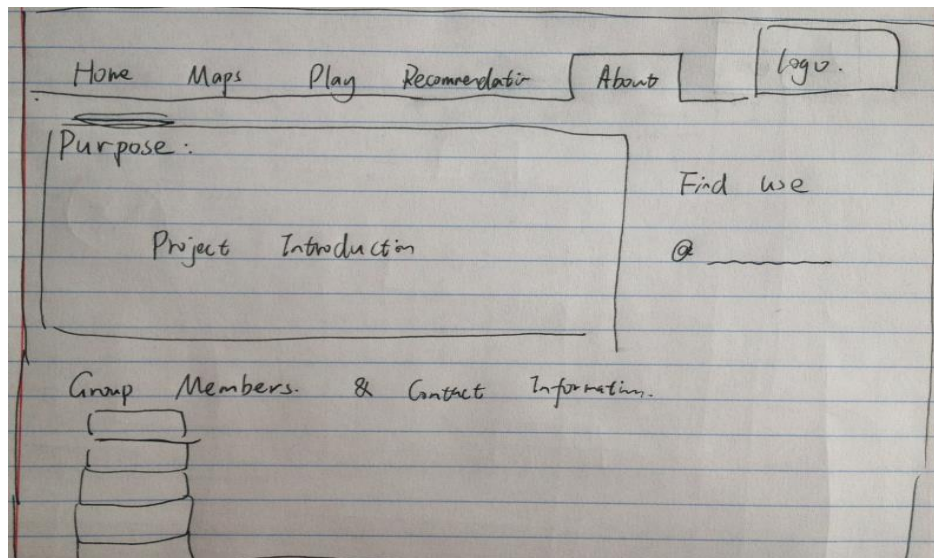 Home Maps Play Recommendatin About logo.
Purpose:
Find use
Project Introduction
@
Group Members. & Contact Information.